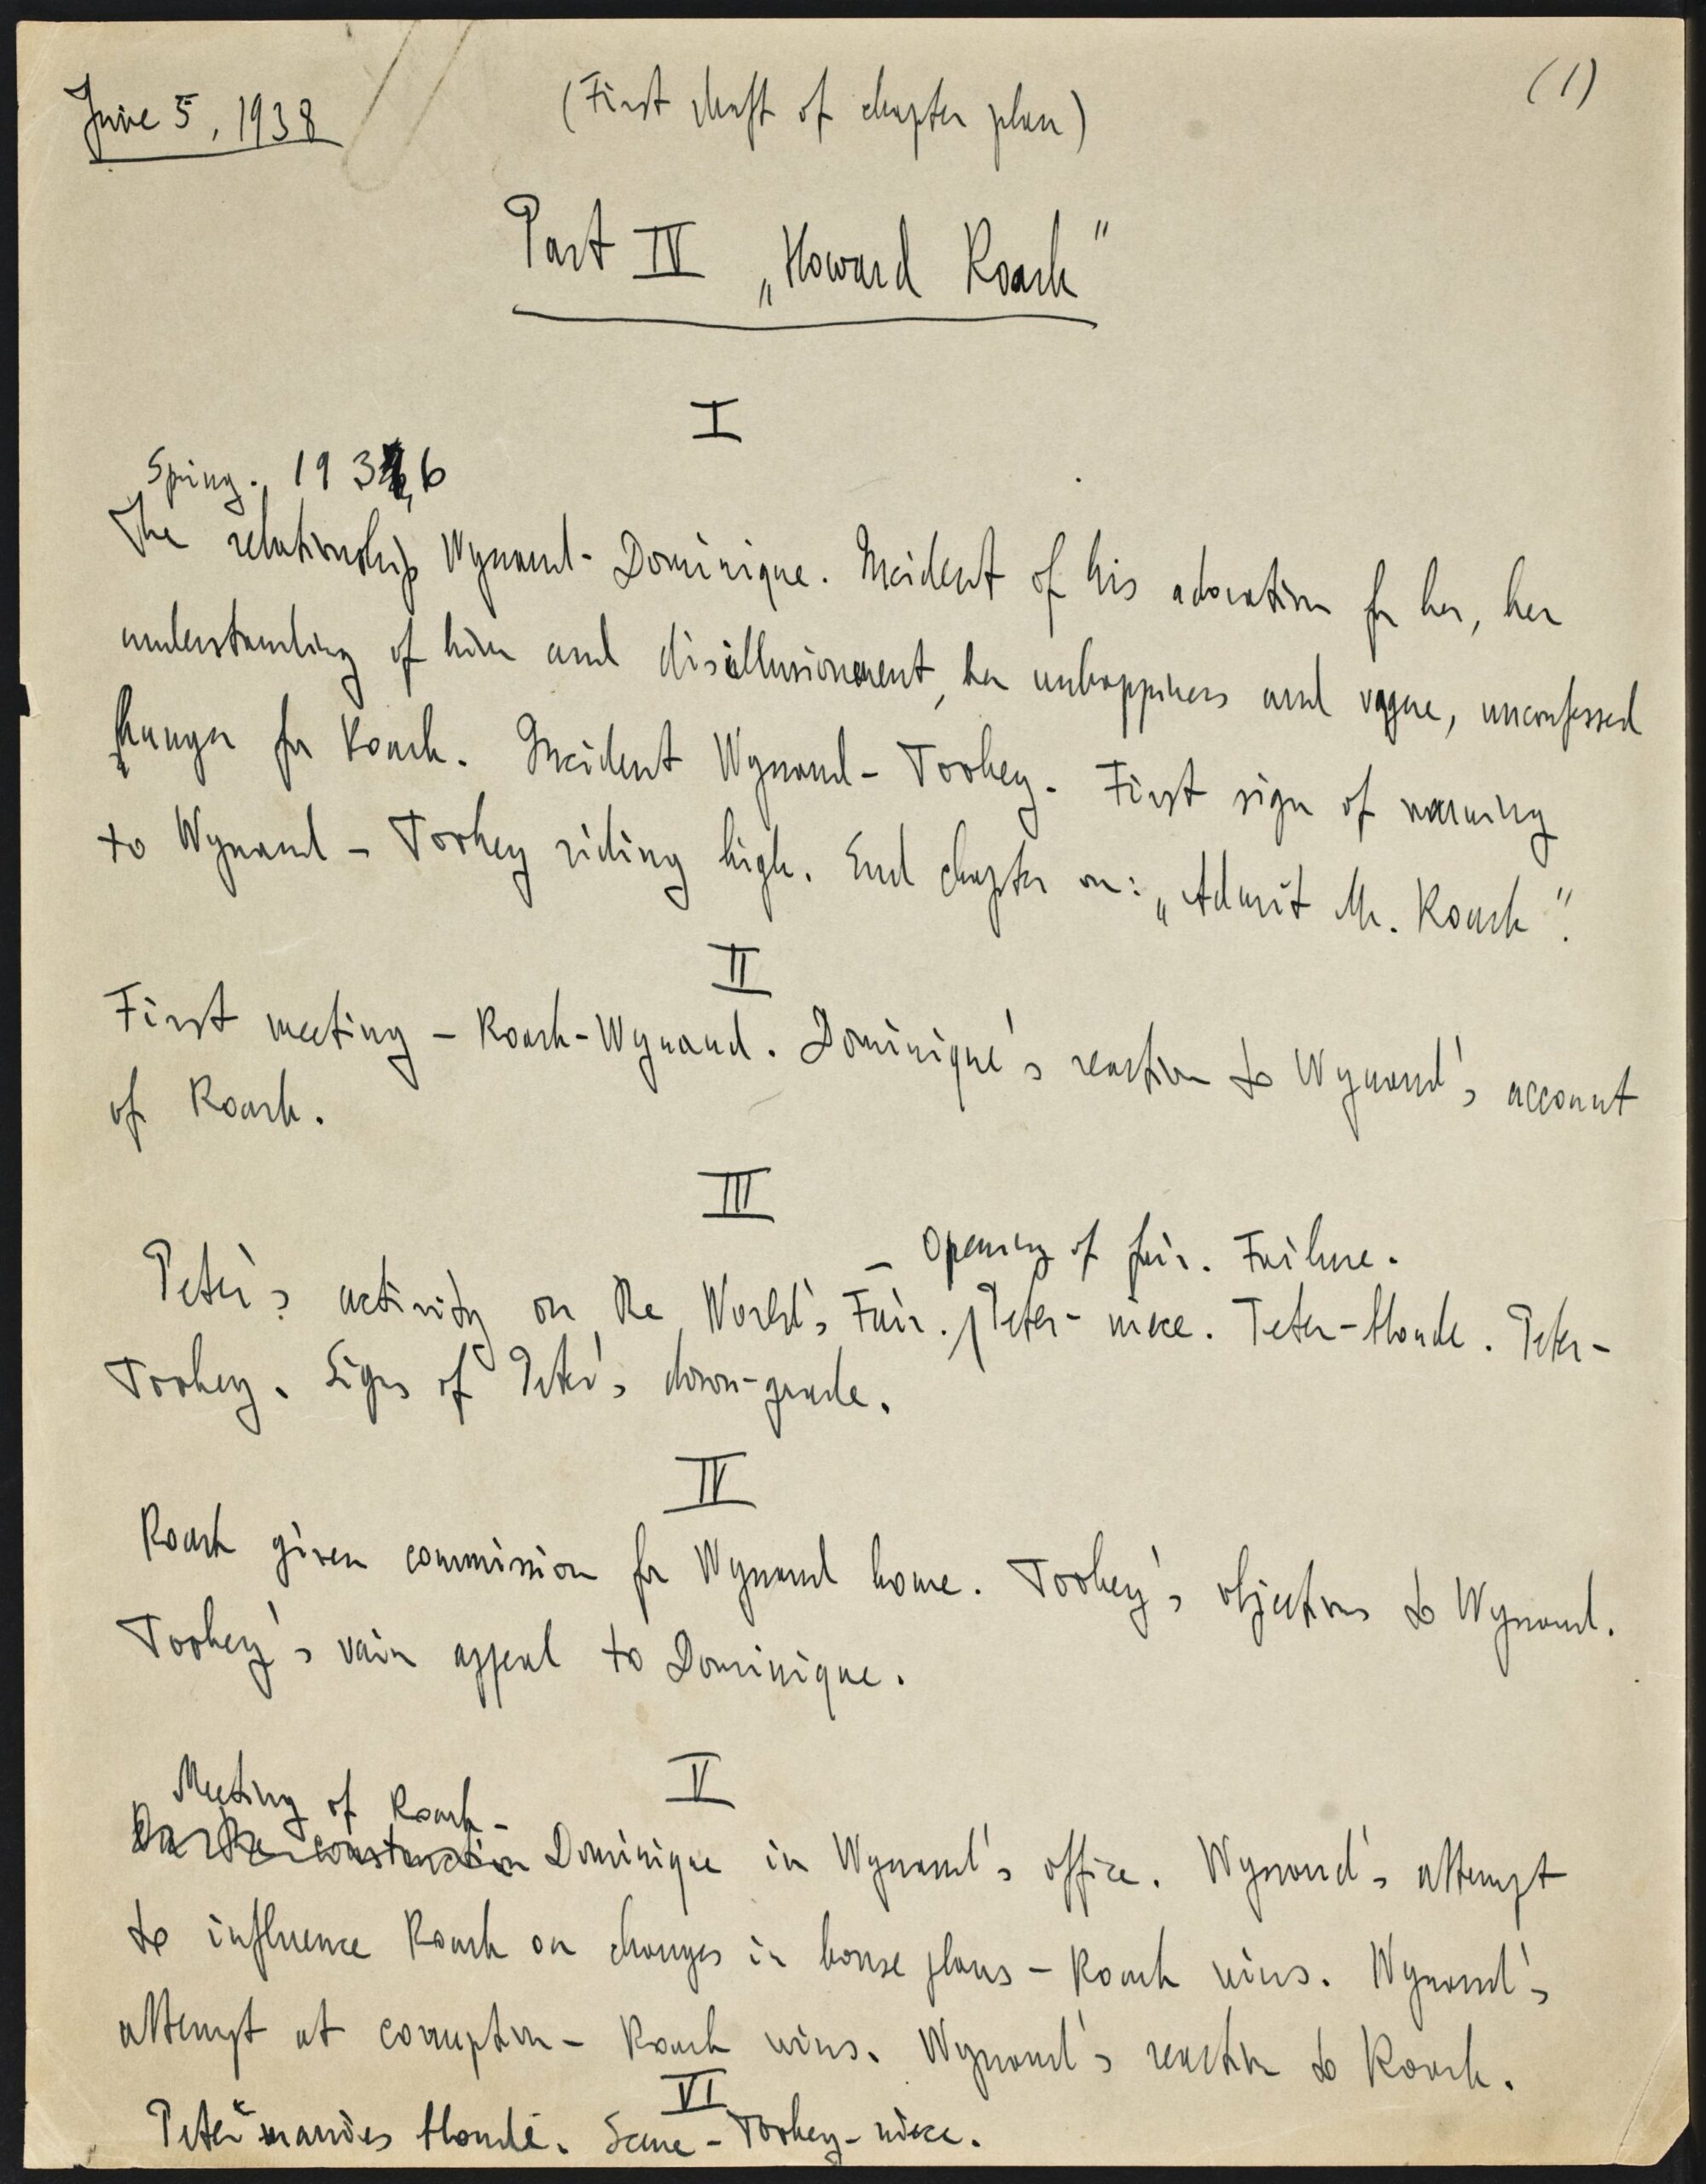 June 5, 1938
(First draft of chapter plan)
(1)
Part IV „Howard Roark"
I
Spring. 1936
The relationship Wynand-Dominique. Incident of his adoration for her, her
understanding of him and disillusionment, her unhappiness and vague, unconfessed
hunger for Roark. Incident Wynand - Toohey. First sign of warning
to Wynand - Toohey riding high. End chapter on: „Admit Mr. Roark".
II
First meeting - Roark-Wynand. Dominique's reaction to Wynand's account
of Roark.
III
- Opening of fair. Failure.
Peter's activity on the World's Fair. Peter - niece. Peter-blonde. Peter-
Toohey. Signs of Peter's down-grade.
IV
Roark given commission for Wynand home. Toohey's objections to Wynand.
Toohey's vain appeal to Dominique.
V
Meeting of Roark-
On the construction Dominique in Wynand's office. Wynand's attempt
to influence Roark on changes in house plans - Roark wins. Wynand's
attempt at corruption - Roark wins. Wynand's reaction to Roark.
VI
Peter marries blonde. Scene - Toohey-niece.